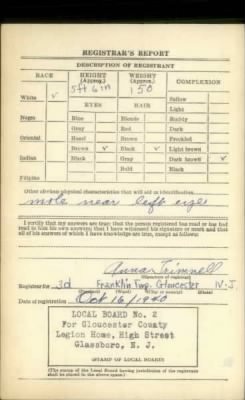 REGISTRAR'S REPORT
DESCRIPTION OF REGISTRANT
RACE HEIGHT (Approx.) WEIGHT (Approx.) COMPLEXION
5 ft 6 in 150
White ✓ EYES HAIR Sallow
Light
Negro Blue Blonde Ruddy
Gray Red Dark
Oriental Hazel Brown Freckled
Brown ✓ Black ✓ Light brown
Indian Black Gray Dark brown ✓
Bald Black
Filipino
Other obvious physical characteristics that will aid in identification
mole near left eye
I certify that my answers are true; that the person registered has read or has had
read to him his own answers; that I have witnessed his signature or mark and that
all of his answers of which I have knowledge are true, except as follows:
Anna Trimnell
(Signature of registrar)
Registrar for 3d Franklin Twp. Gloucester N. J
(Precinct) (Ward) (City or county) (State)
Date of registration Oct 16/1940
LOCAL BOARD No. 2
For Gloucester County
Legion Home, High Street
Glassboro, N. J.
(STAMP OF LOCAL BOARD)
(The stamp of the Local Board having jurisdiction of the registrant
shall be placed in the above space.)